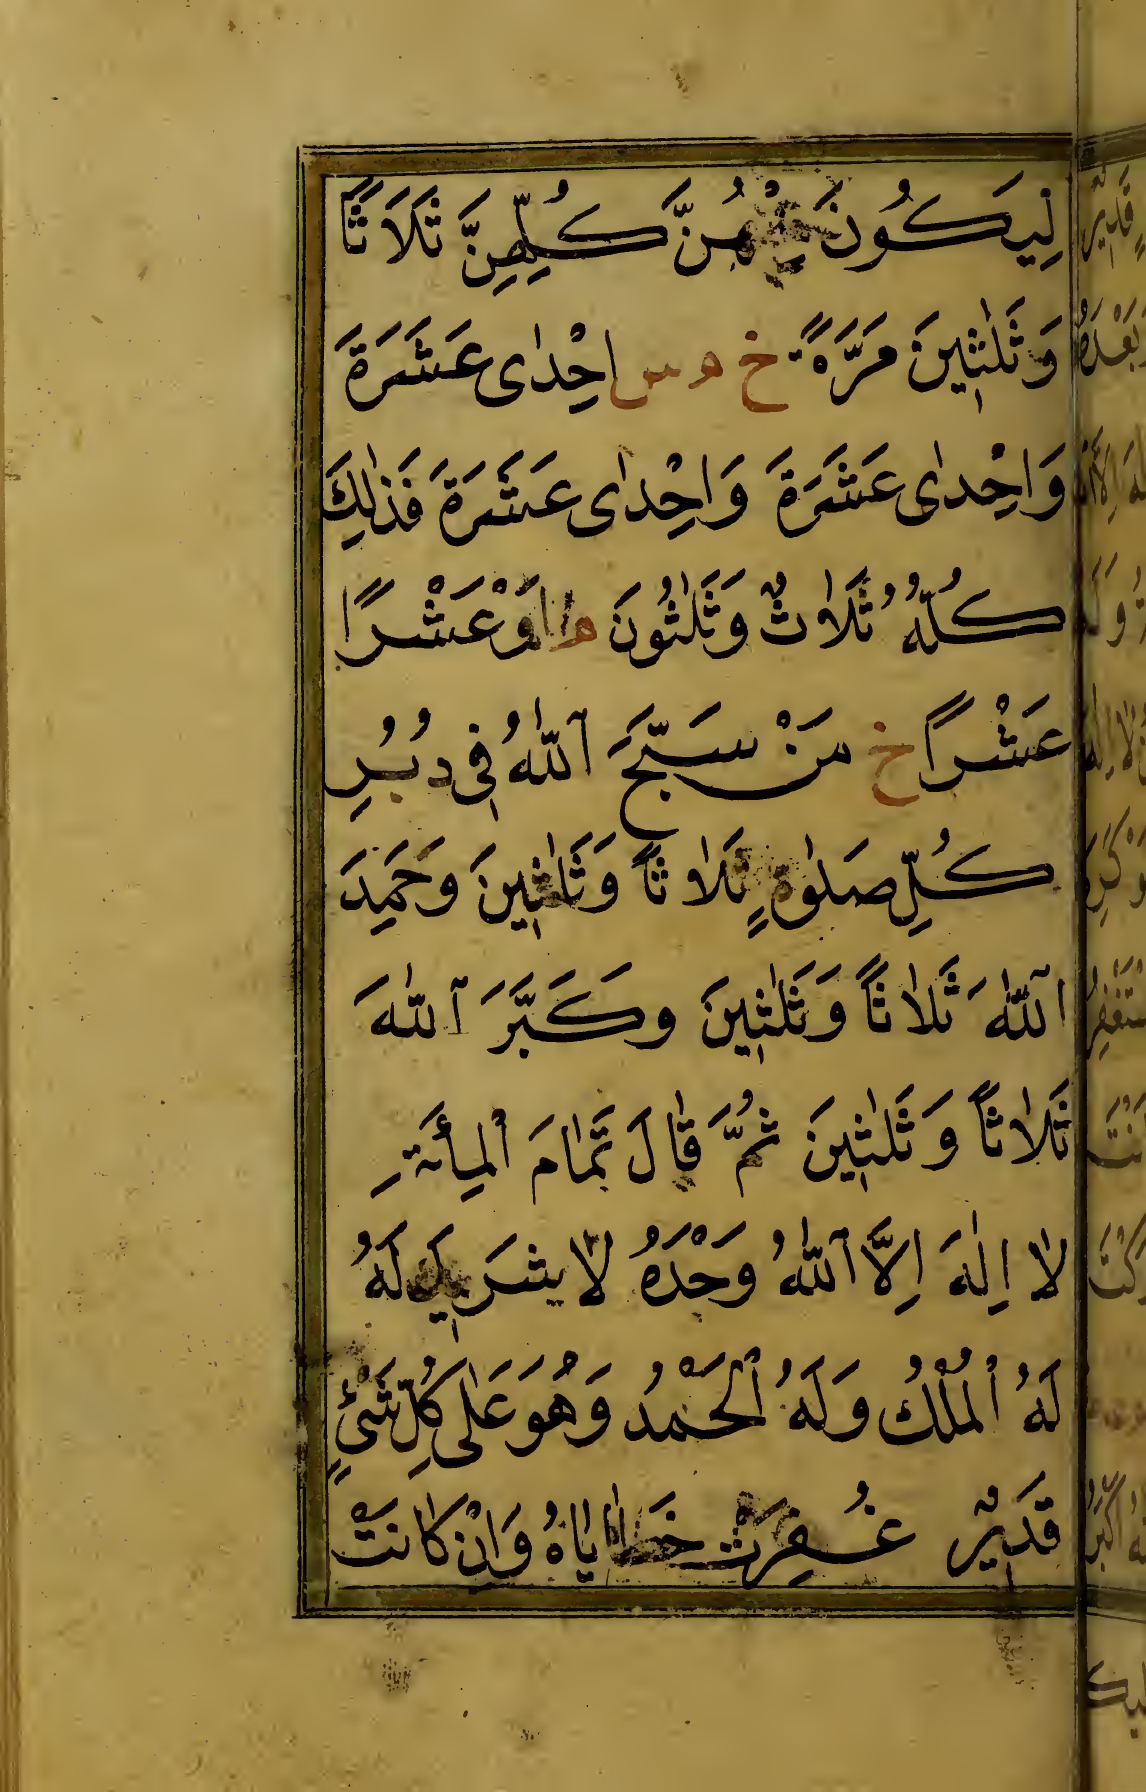 لِيَكُونَ مِنْهُنَّ كُلِّهِنَّ ثَلَاثًا
وَثَلٰثِينَ مَرَّةً خ م س اِحْدٰى عَشَرَةَ
وَاِحْدٰى عَشَرَةَ وَاِحْدٰى عَشَرَةَ فَذٰلِكَ
كُلُّهُ ثَلٰاثٌ وَثَلٰثُونَ م اَوْ عَشْرًا
عَشْرًا خ مَنْ سَبَّحَ اللّٰهُ فِي دُبُرِ
كُلِّ صَلٰوةٍ ثَلٰاثاً وَثَلٰثِينَ وَحَمِدَ
اللّٰهَ ثَلٰاثاً وَثَلٰثِينَ وَكَبَّرَ اللّٰهَ
ثَلٰاثاً وَثَلٰثِينَ ثُمَّ قٰالَ تَمٰامَ الْمِأَئَةِ
لٰا اِلٰهَ اِلَّا اللّٰهُ وَحْدَهُ لٰا شَرِيكَ لَهُ
لَهُ الْمُلْكُ وَلَهُ الْحَمْدُ وَهُوَ عَلٰى كُلِّ شَيْءٍ
قَدِيرٌ غُفِرَتْ خَطٰايٰاهُ وَاِنْ كٰانَتْ